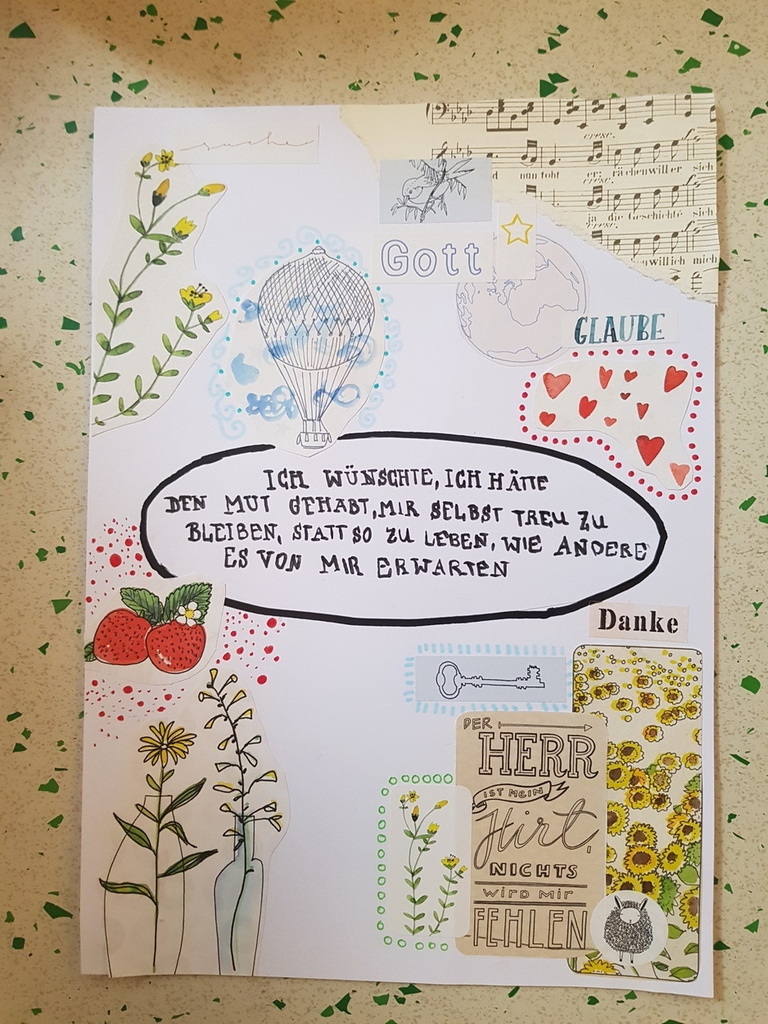 suche
cresc.
cresc.
nun tobt er; rächen will er sich
cresc.
ja die Geschichte sich
will ich mich
Gott
GLAUBE
ICH WÜNSCHTE, ICH HÄTTE
DEN MUT GEHABT, MIR SELBST TREU ZU
BLEIBEN, STATT SO ZU LEBEN, WIE ANDERE
ES VON MIR ERWARTEN
Danke
DER
HERR
IST MEIN
Hirt,
NICHTS
WIRD MIR
FEHLEN